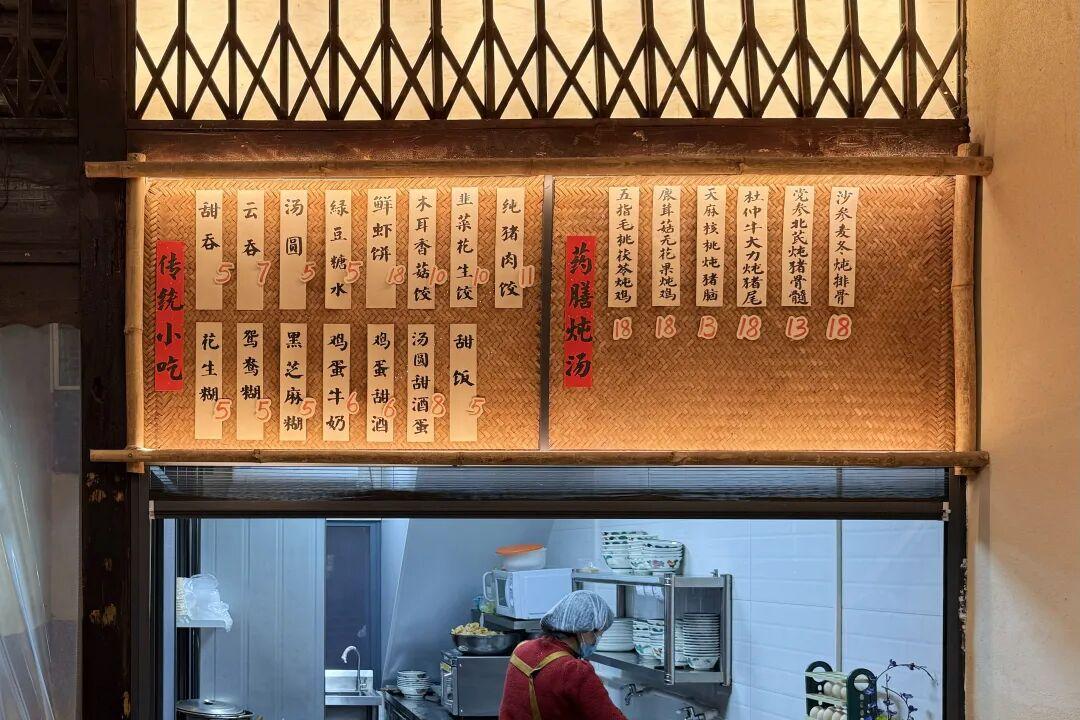 传统小吃
甜吞 5
云吞 7
汤圆 5
绿豆糖水 5
鲜虾饼 18
木耳香菇饺 10
韭菜花生饺 10
纯猪肉饺 11
花生糊 5
鸳鸯糊 5
黑芝麻糊 5
鸡蛋牛奶 6
鸡蛋甜酒 6
汤圆甜酒蛋 8
甜饭 5
药膳炖汤
五指毛桃茯苓炖鸡 18
鹿茸菇无花果炖鸡 18
天麻核桃炖猪脑 13
杜仲牛大力炖猪尾 18
党参北芪炖猪骨髓 13
沙参麦冬炖排骨 18